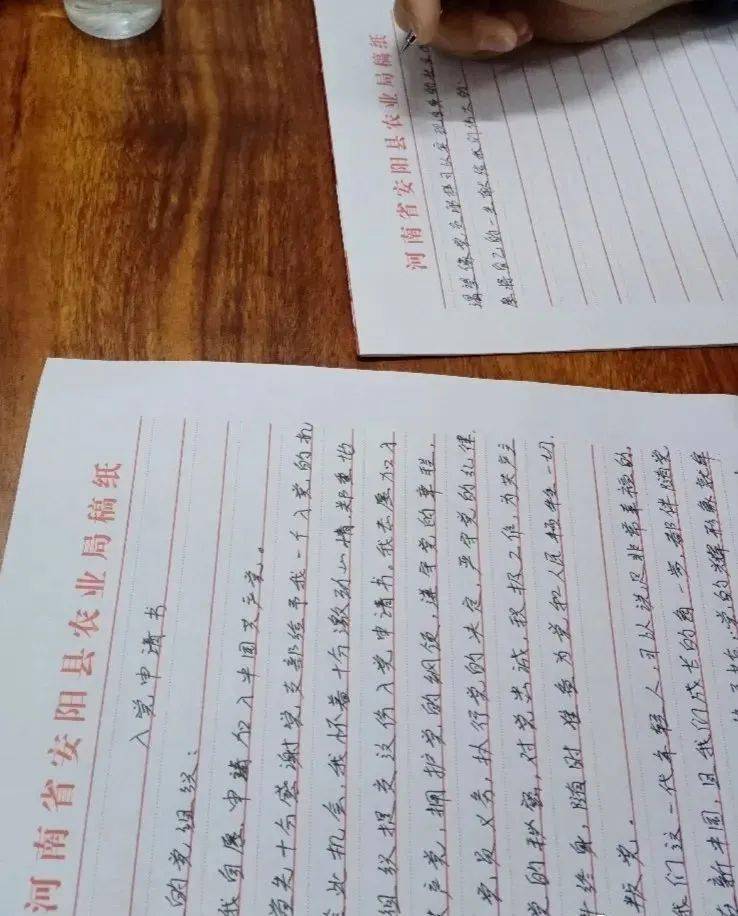 河南省安阳县农业局稿纸
入党申请书
的党组织：
我自愿申请加入中国共产党。
首先十分感谢党支部给予我一个入党的机
此机会，我怀着十分激动心情郑重地
组织提交这份入党申请书。我志愿加入
产党，拥护党的纲领，遵守党的章程，
党员义务，执行党的决定，严守党的纪律
党的秘密，对党忠诚，积极工作，为共产主
终身，随时准备为党和人民牺牲一切，
叛党。
我们这一代年轻人可以说是非常幸福的
新中国，且我们成长的每一步，都伴随党
党的辉
河南省安阳县农业局稿纸
愿将自己的一生献给